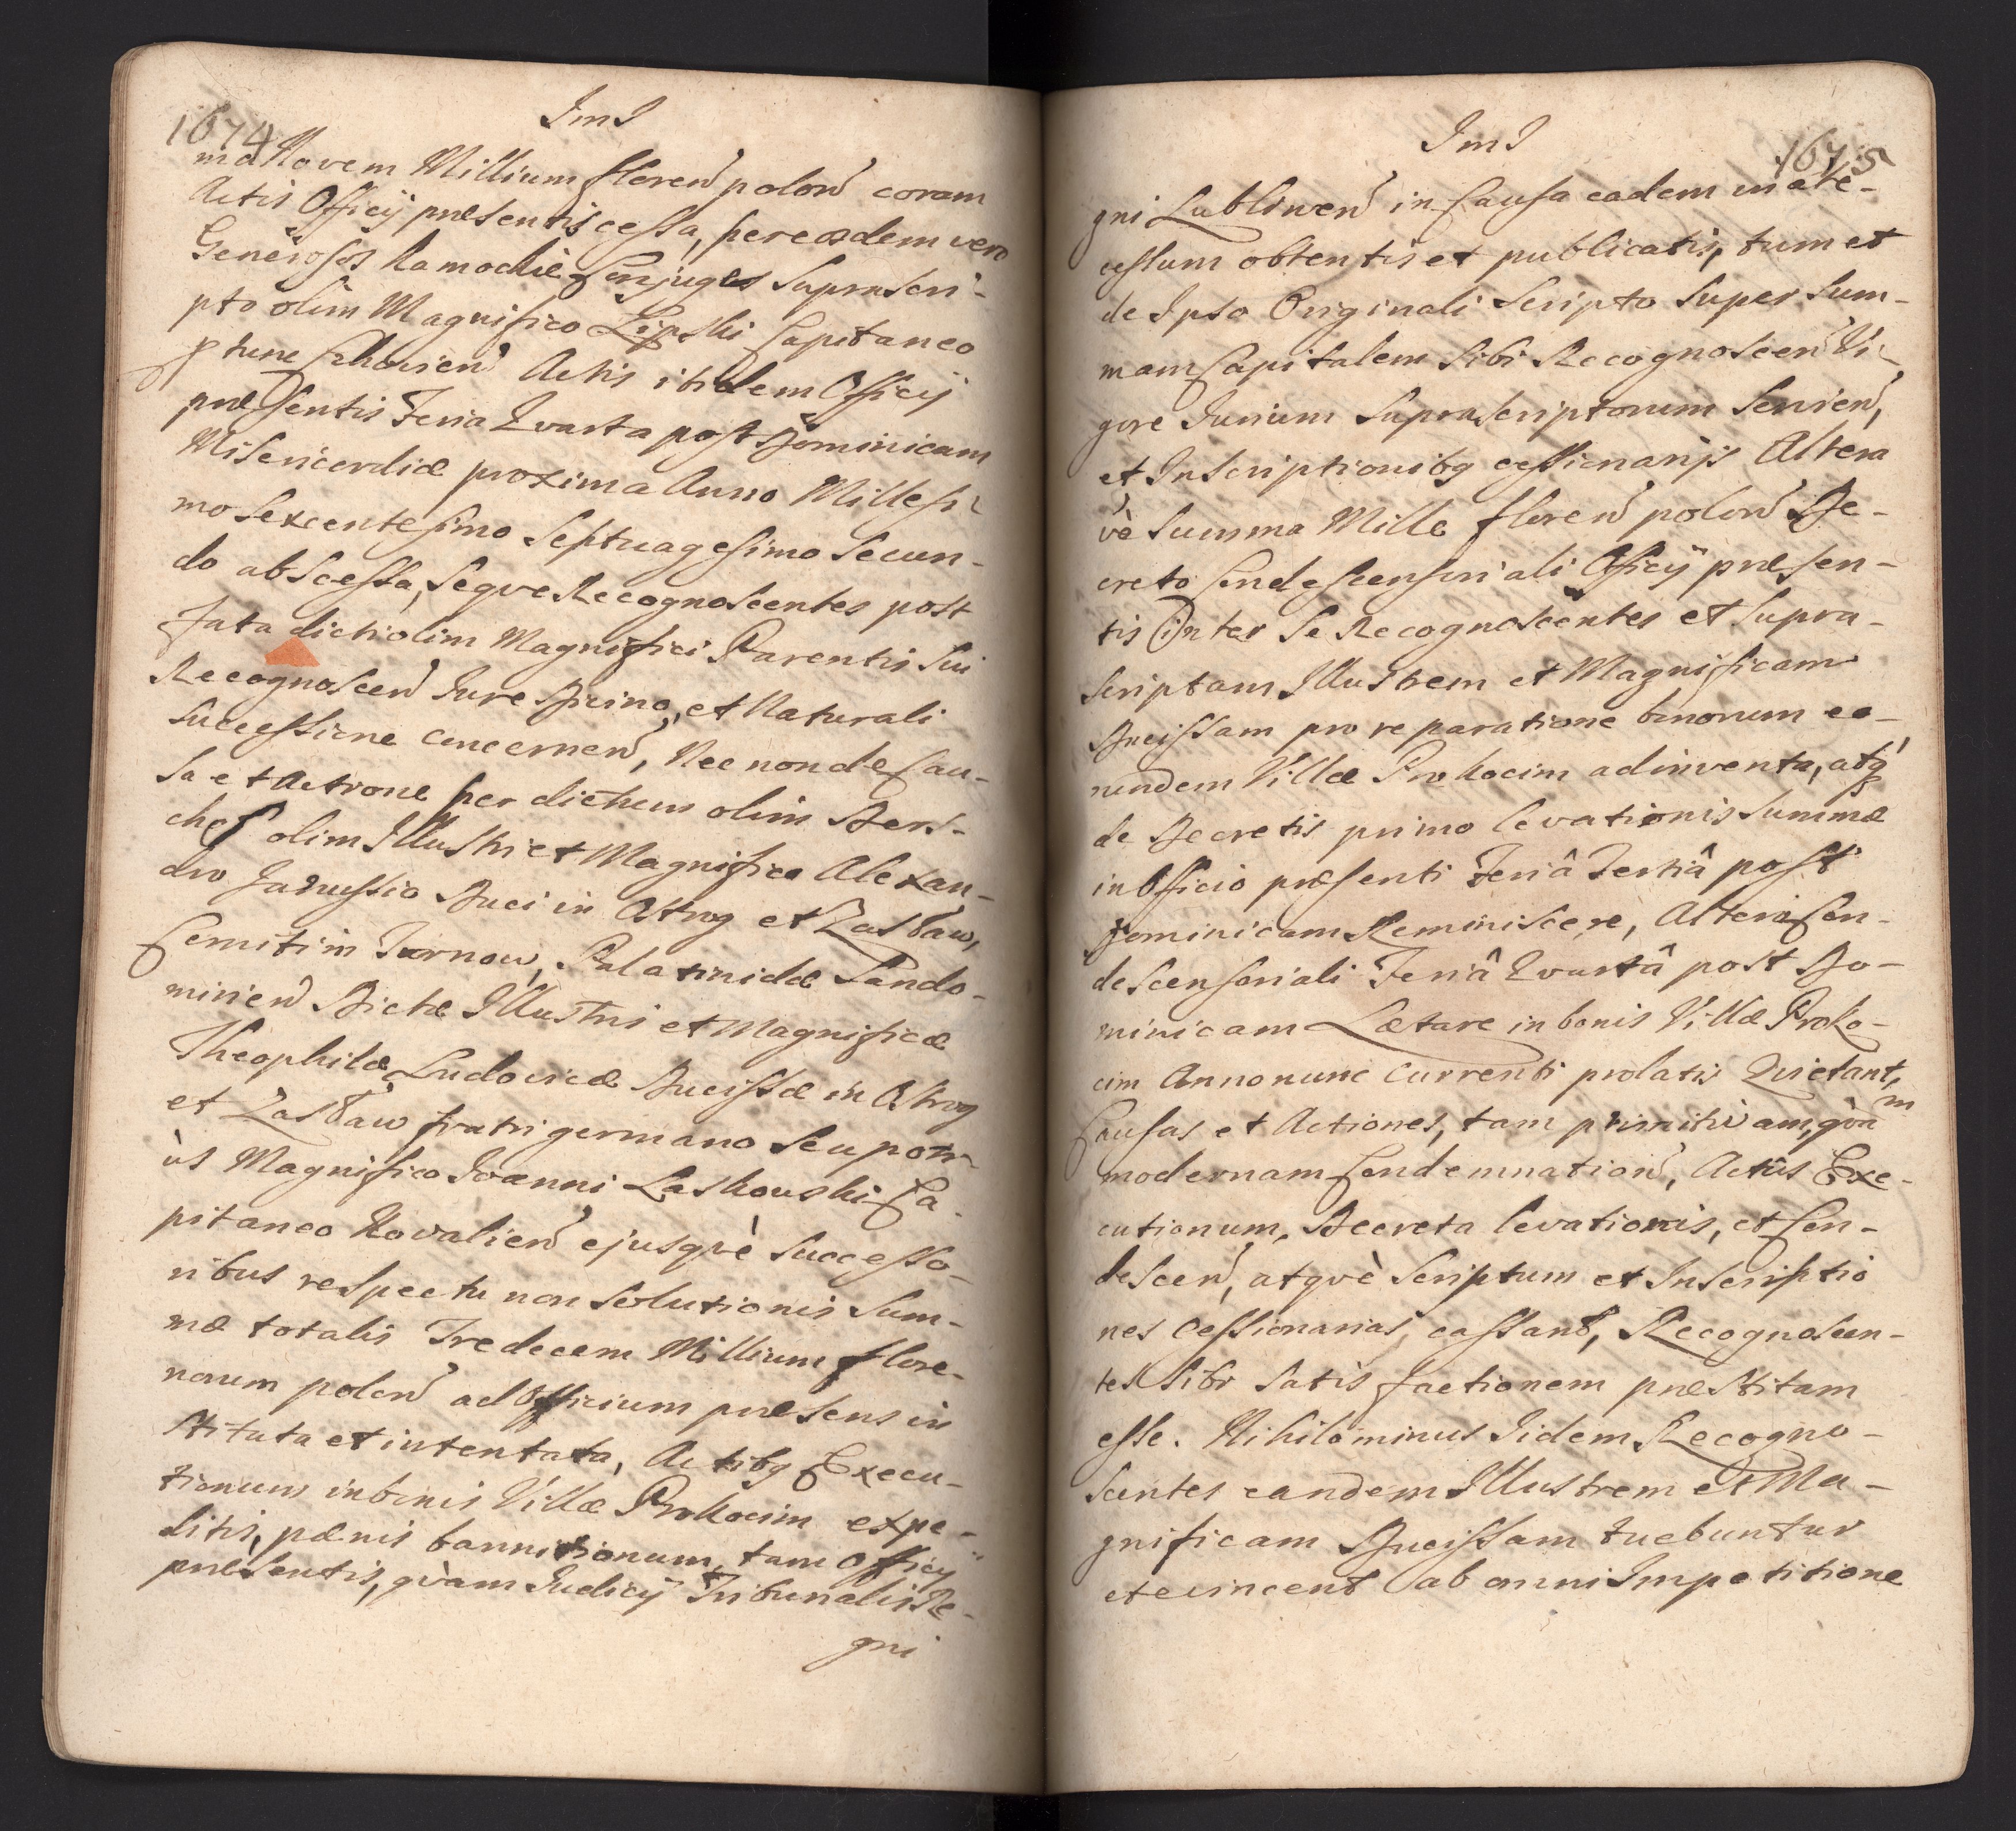 1674
ImI
ma Novem Millium floren polon coram
Actis Officij præsentis cessa, per eosdem vero
Generosos Kamockie Conjuges Suprascri-
pto olim Magnifico Lipski Capitaneo
p tunc Czhovien Actis itidem Officij
præsentis Feria Qvarta post Dominicam
Misericordiæ proxima Anno Millesi-
mo Sexcentesimo Septuagesimo Secun-
do abscessa, Seqve Recognoscentes post
fata dicti olim Magnifici Parentis Sui
Recognoscen Iure Divino, et Naturali
Successione concernen, Nec non de Cau-
sa et Actione per dictum olim
olim Illustri et Magnifico Alexan-
dro Janussio Duci in Ostrog et Zasław,
Comiti in Tarnow, Palatinidæ Sando-
mirien Dictæ Illustris et Magnificæ
Theophilæ Ludovicæ Ducissæ in Ostrog
et Zasław fratri germano Seu poti-
ùs Magnifico Ioanni Laskowski Ca-
pitaneo Kovalien ejusqvè Successo-
ribus respectu non Solutionis Sum-
mæ totalis Tredecem Millium flore-
norum polon ad Officium præsens in
Stituta et intentata, Actibq Execu-
tionum in bonis Villæ Prokocim expe-
ditis, pænis bannitionum, tam Officij
præsentis, qvàm Iudicij Tribunalis Re-
gni
ImI
1675
gni Lublinen in Causa eadem in ate-
cessum obtentis et publicatis, tum et
de Ipso Originali Scripto Super Sum-
mam Capitalem Sibi Recognoscen Vi-
gore Iurium Suprascriptorum Servien,
et Inscriptionibq cessionarijs Altera
vè Summa Mille floren polon De-
creto Condescensoriali Officij præsen-
tis inter Se Recognoscentes et Supra-
scriptam Illustrem et Magnificam
Ducissam pro reparatione bonorum eo-
rundem Villæ Prokocim adinventa, atq
de Decretis primo levationis Summæ
in Officio præsenti Feriâ Tertiâ post
Dominicam Reminiscere, Altero Con-
descensoriali Feriâ Qvartâ post Do-
minicam Lætare in bonis Villæ Proko-
cim Anno nunc currenti prolatis Qvietant,
Causas et Actiones, tam primitivam, qvàm
modernam Condemnation, Actûs Exe-
cutionum, Decreta levationis, et Con-
descen, atqvè Scriptum et Inscriptio
nes Cessionarias, cassant, Recognoscen-
tes Sibi Satis factionem præstitam
esse. Nihilominus Iidem Recogno-
scentes eandem Illustrem et Ma-
gnificam Ducissam tuebuntur
et evincent ab omni Impetitione